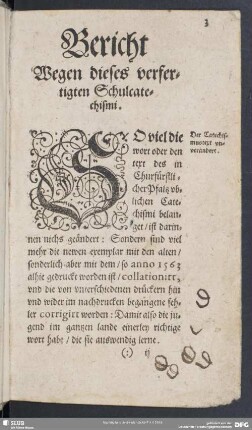 3
Bericht
Wegen dieses verfer-
tigten Schulcate-
chismi.
SO viel die
wort oder den
text des in
Churfürstli-
cher Pfaltz vb-
lichen Cate-
chismi belan-
get / ist darin-
nen nichs geändert: Sondern sind viel
mehr die newen exemplar mit den alten /
sonderlich aber mit dem / so anno 1563
alhie gedruckt worden ist / collationirt,
vnd die von vnterschiedenen drückern hin
vnd wider im nachdrucken begangene feh-
ler corrigirt worden: Damit also die ju-
gend im gantzen lande einerley richtige
wort habe / die sie auswendig lerne.
Der Catechis-
mustext vn-
verändert.
(:) ij
SLUB